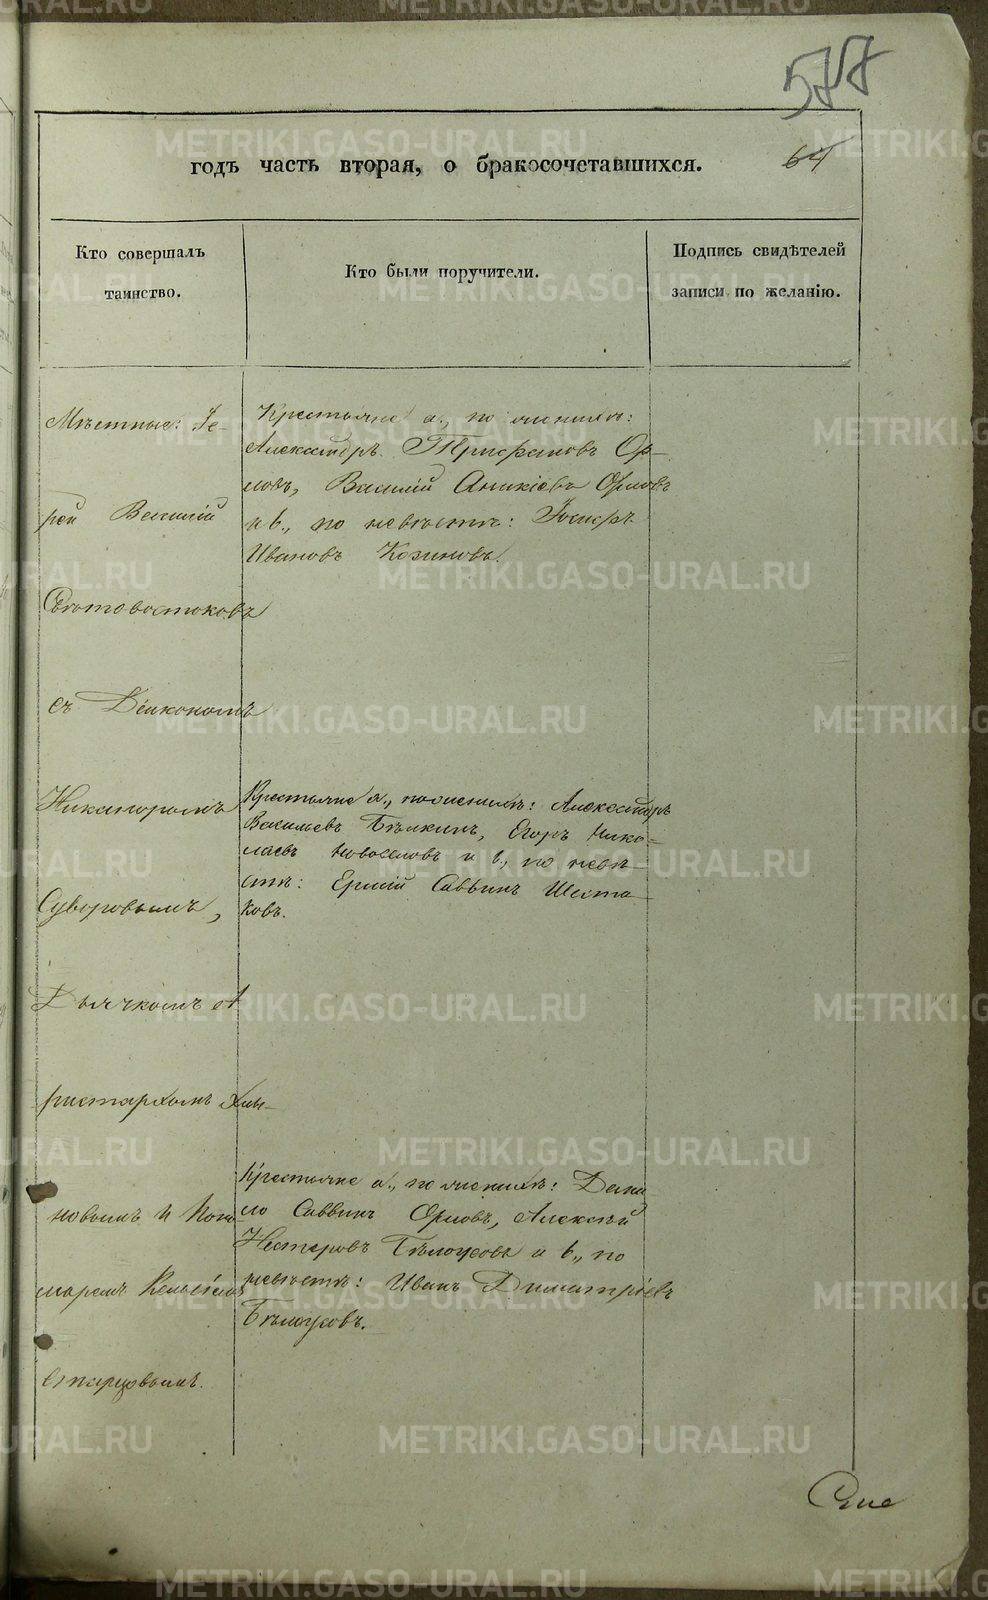 577
64
годъ часть вторая, о бракосочетавшихся.
Кто совершалъ
таинство.
Кто были поручители.
Подпись свидѣтелей
записи по желанію.
Мѣстные: Іе-
рей Василій
Свѣтовостоковъ
съ Діакономъ
Никаноромъ
Суворовымъ,
Дьячкомъ А
ристархомъ Хлы-
новымъ и Поно
маремъ
Старцовымъ.
Крестьяне а., по женихѣ:
Александръ Трифановъ Ор-
ловъ, Василій Аникіевъ Орловъ
и b., по невѣстѣ: Іосифъ
Ивановъ Козиновъ.
Крестьяне а., по женихѣ: Александръ
Васильевъ Бѣлкинъ, Егоръ Нико-
лаевъ Новоселовъ и b., по невѣ-
стѣ: Ермій Саввинъ Шеста-
ковъ.
Крестьяне а., по женихѣ: Дани
ло Саввинъ Орловъ, Алексѣй
Нестеровъ Бѣлоусовъ и b., по
невѣстѣ: Иванъ Димитріевъ
Бѣлоусовъ.
METRIKI.GASO-URAL.RU